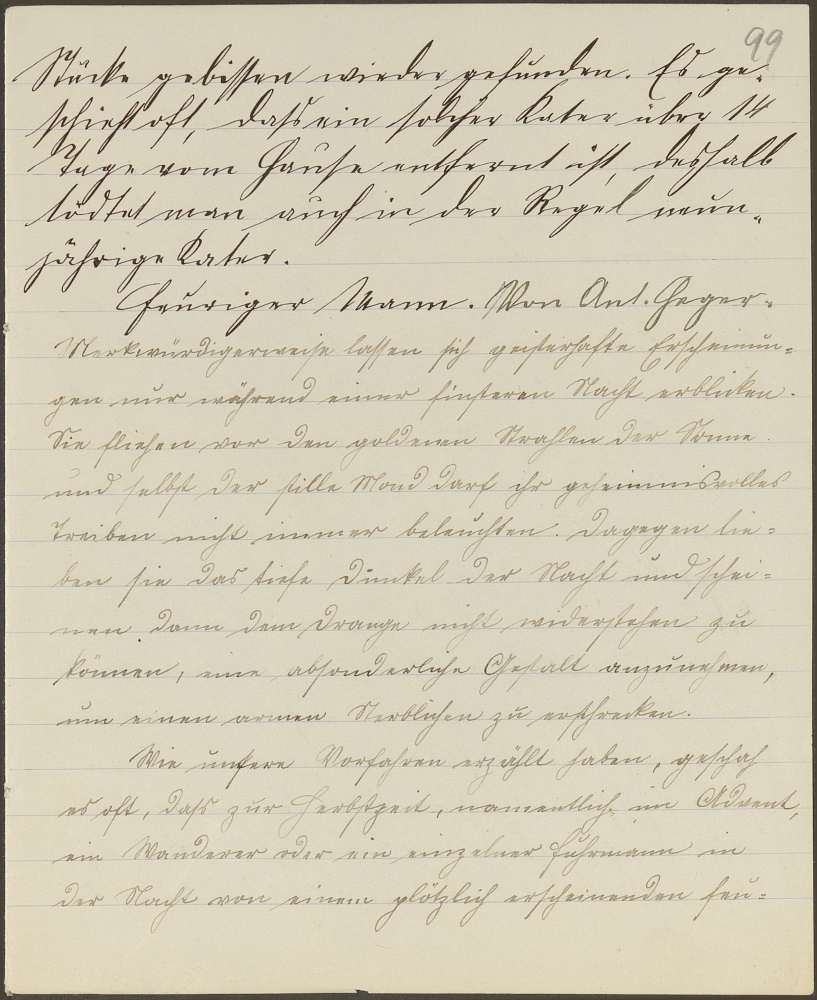 99
Stücke gebissen wieder gefunden. Es ge-
schieht oft, dass ein solcher Kater über 14
Tage vom Hause entfernt ist, deshalb
tödtet man auch in der Regel neun-
jährige Kater.
Feuriger Mann. Von Ant. Heger-
Merkwürdigerweise lassen sich geisterhafte Erscheinun-
gen nur während einer finsteren Nacht erblicken.
Sie fliehen vor den goldenen Strahlen der Sonne
und selbst der stille Mond darf ihr geheimnisvolles
Treiben nicht immer beleuchten. Dagegen lie-
ben sie das tiefe Dunkel der Nacht und schei-
nen dann dem Drange nicht widerstehen zu
können, eine absonderliche Gestalt anzunehmen,
um einen armen Sterblichen zu erschrecken.
Wie unsere Vorfahren erzählt haben, geschah
es oft, dass zur Herbstzeit, namentlich im Advent,
ein Wanderer oder ein einzelner Fuhrmann in
der Nacht von einem plötzlich erscheinenden feu-